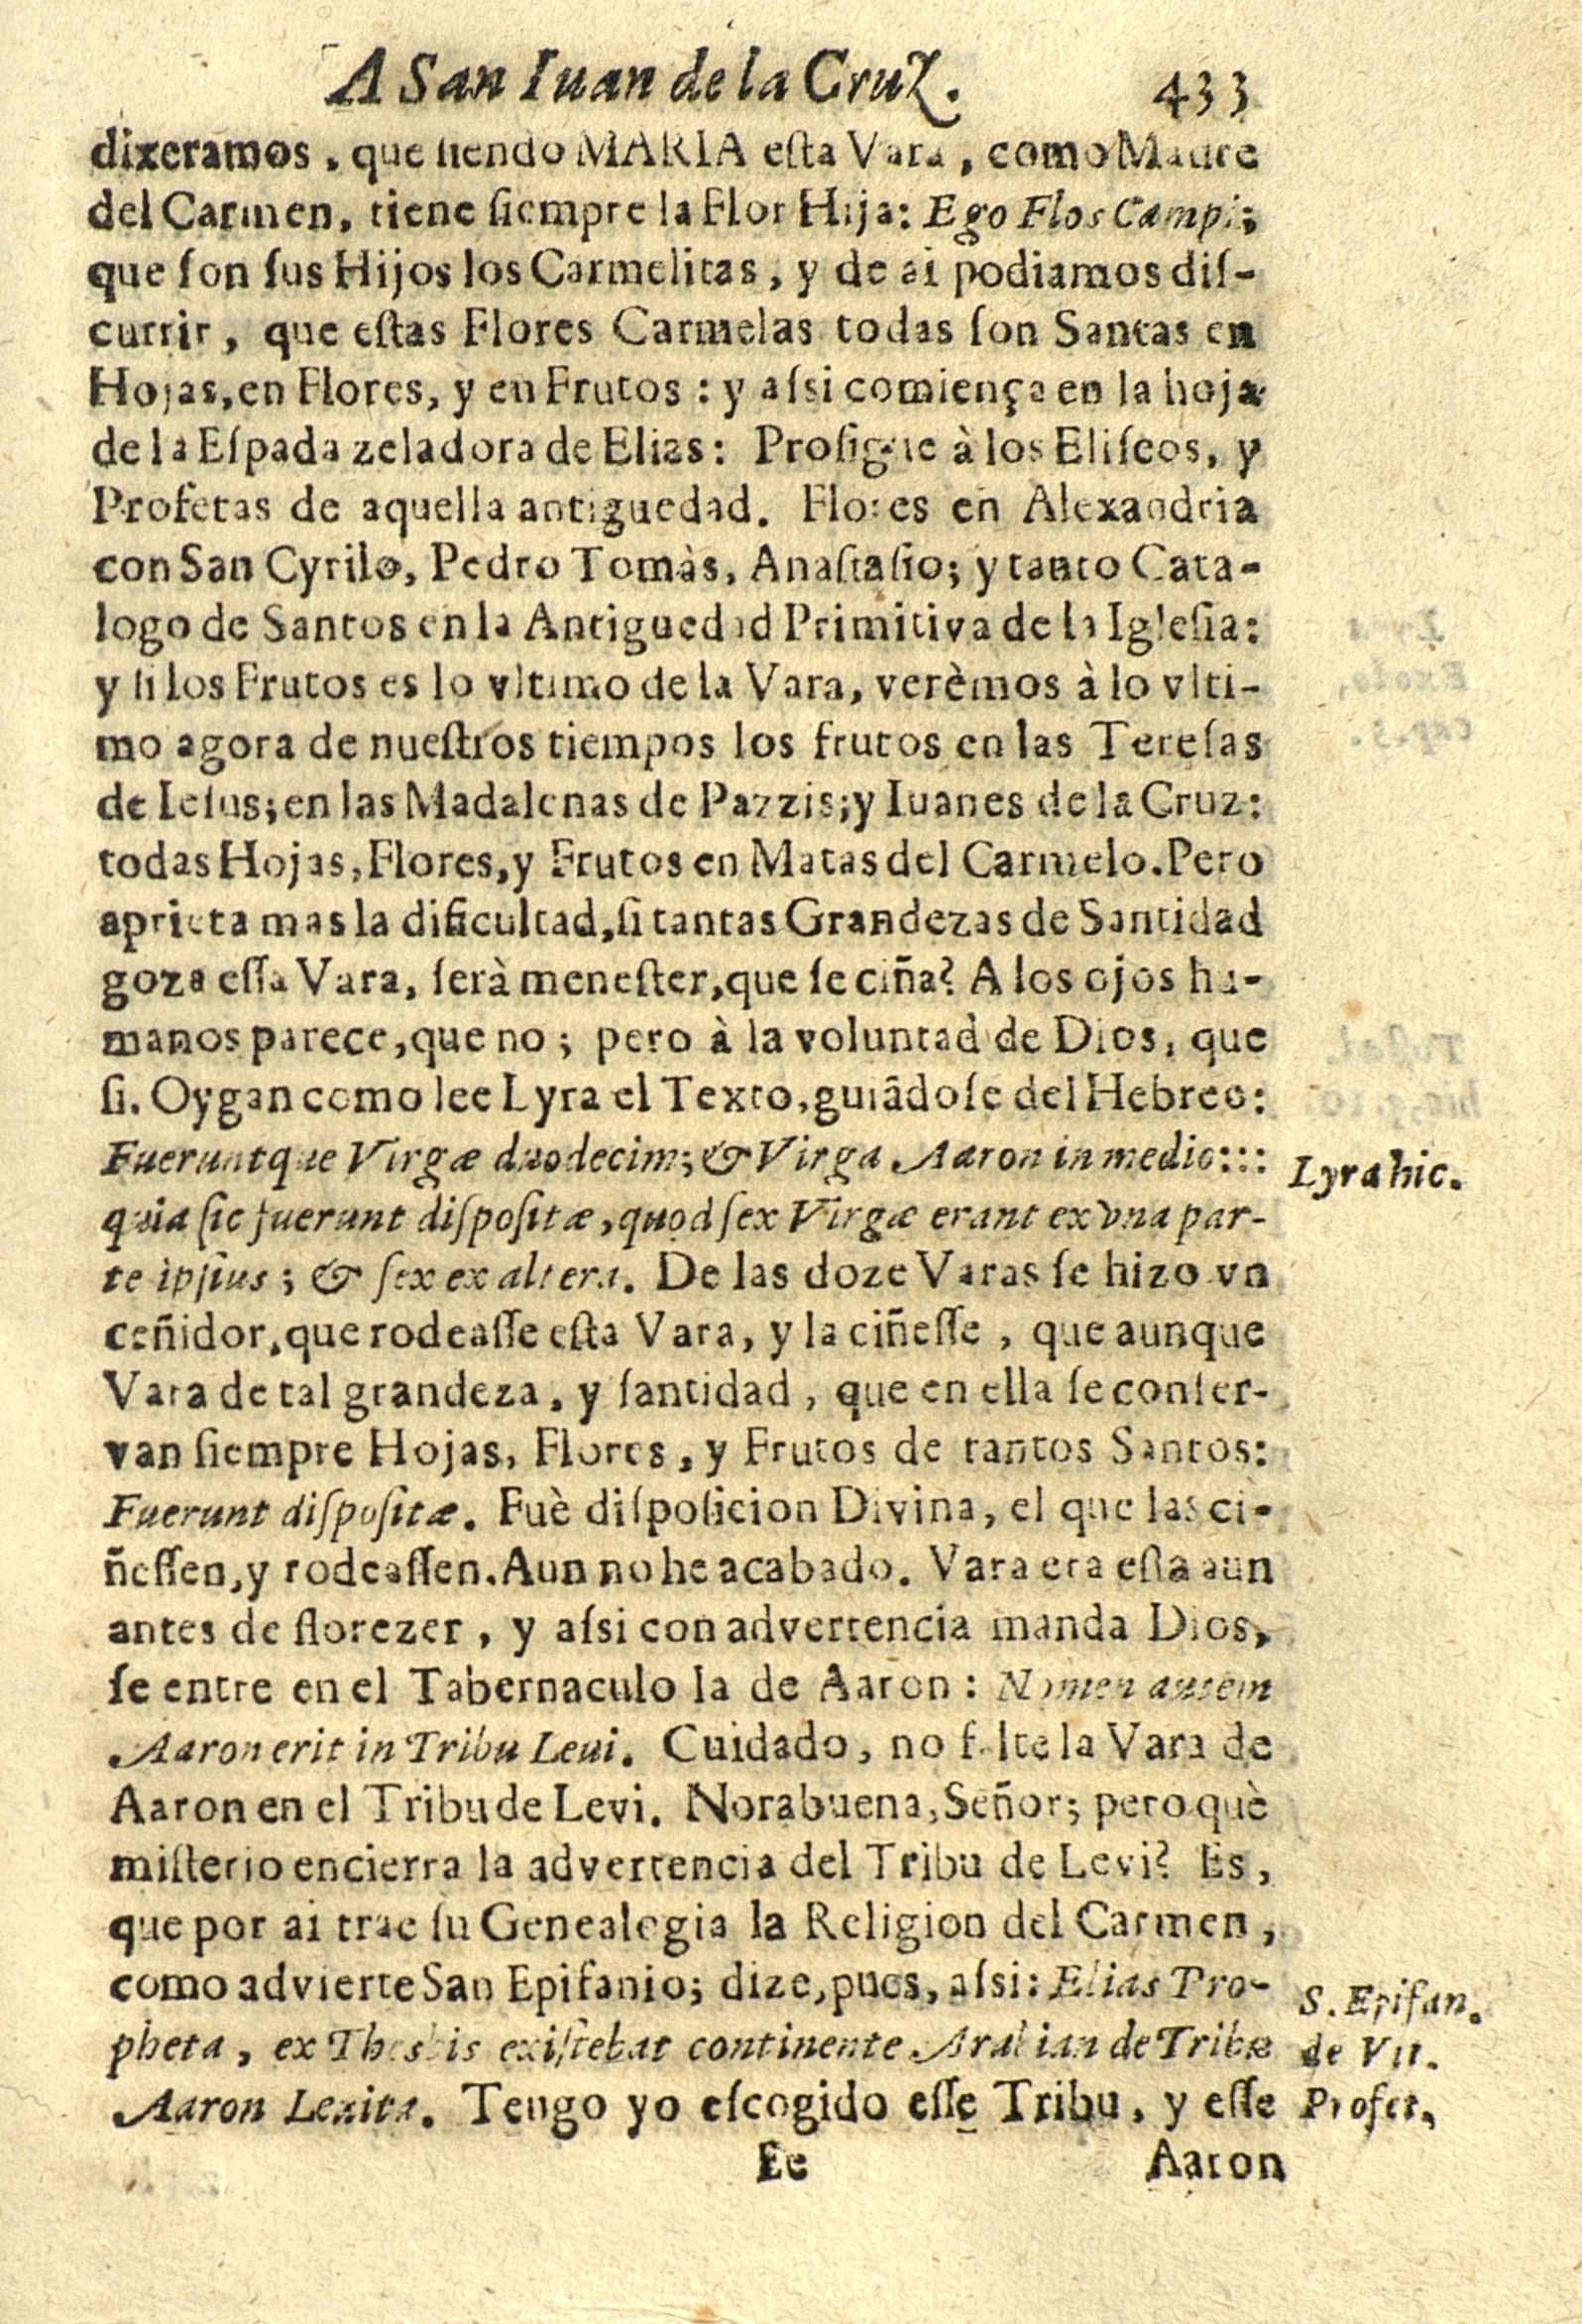 A San Iuan de la Cruz. 433
dixeramos, que ſiendo MARIA eſta Vara, como Madre
del Carmen, tiene ſiempre la Flor Hija: Ego Flos Campi;
que ſon ſus Hijos los Carmelitas, y de ai podiamos diſ-
currir, que eſtas Flores Carmelas todas ſon Santas en
Hojas, en Flores, y en Frutos: y aſsi comiença en la hoja
de la Eſpada zeladora de Elias: Proſigue à los Eliſeos, y
Profetas de aquella antiguedad. Flores en Alexandria
con San Cyrilo, Pedro Tomàs, Anaſtaſio; y tanto Cata-
logo de Santos en la Antiguedad Primitiva de la Igleſia:
y ſi los Frutos es lo vltimo de la Vara, verèmos à lo vlti-
mo agora de nueſtros tiempos los frutos en las Tereſas
de Ieſus; en las Madalenas de Pazzis; y Iuanes de la Cruz:
todas Hojas, Flores, y Frutos en Matas del Carmelo. Pero
aprieta mas la dificultad, ſi tantas Grandezas de Santidad
goza eſſa Vara, ſerà meneſter, que ſe ciña? A los ojos hu-
manos parece, que no; pero à la voluntad de Dios, que
ſi. Oygan como lee Lyra el Texto, guiãdoſe del Hebreo:
Fueruntque Virgæ duodecim; & Virga Aaron in medio:::
Lyra hic.
quia ſic fuerunt diſpoſitæ, quod ſex Virgæ erant ex vna par-
te ipſius; & ſex ex altera. De las doze Varas ſe hizo vn
ceñidor, que rodeaſſe eſta Vara, y la ciñeſſe, que aunque
Vara de tal grandeza, y ſantidad, que en ella ſe conſer-
van ſiempre Hojas, Flores, y Frutos de tantos Santos:
Fuerunt diſpoſitæ. Fuè diſpoſicion Divina, el que las ci-
ñeſſen, y rodeaſſen. Aun no he acabado. Vara era eſta aun
antes de florezer, y aſsi con advertencia manda Dios,
ſe entre en el Tabernaculo la de Aaron: Nomen autem
Aaron erit in Tribu Leui. Cuidado, no falte la Vara de
Aaron en el Tribu de Levi. Norabuena, Señor; pero què
miſterio encierra la advertencia del Tribu de Levi? Es,
que por ai trae ſu Genealogia la Religion del Carmen,
como advierte San Epifanio; dize, pues, aſsi: Elias Pro-
S. Epifan.
pheta, ex Thesbis exiſtebat continente Arabian de Tribu
de Vit.
Aaron Leuita. Tengo yo eſcogido eſſe Tribu, y eſſe
Profet,
Ee Aaron